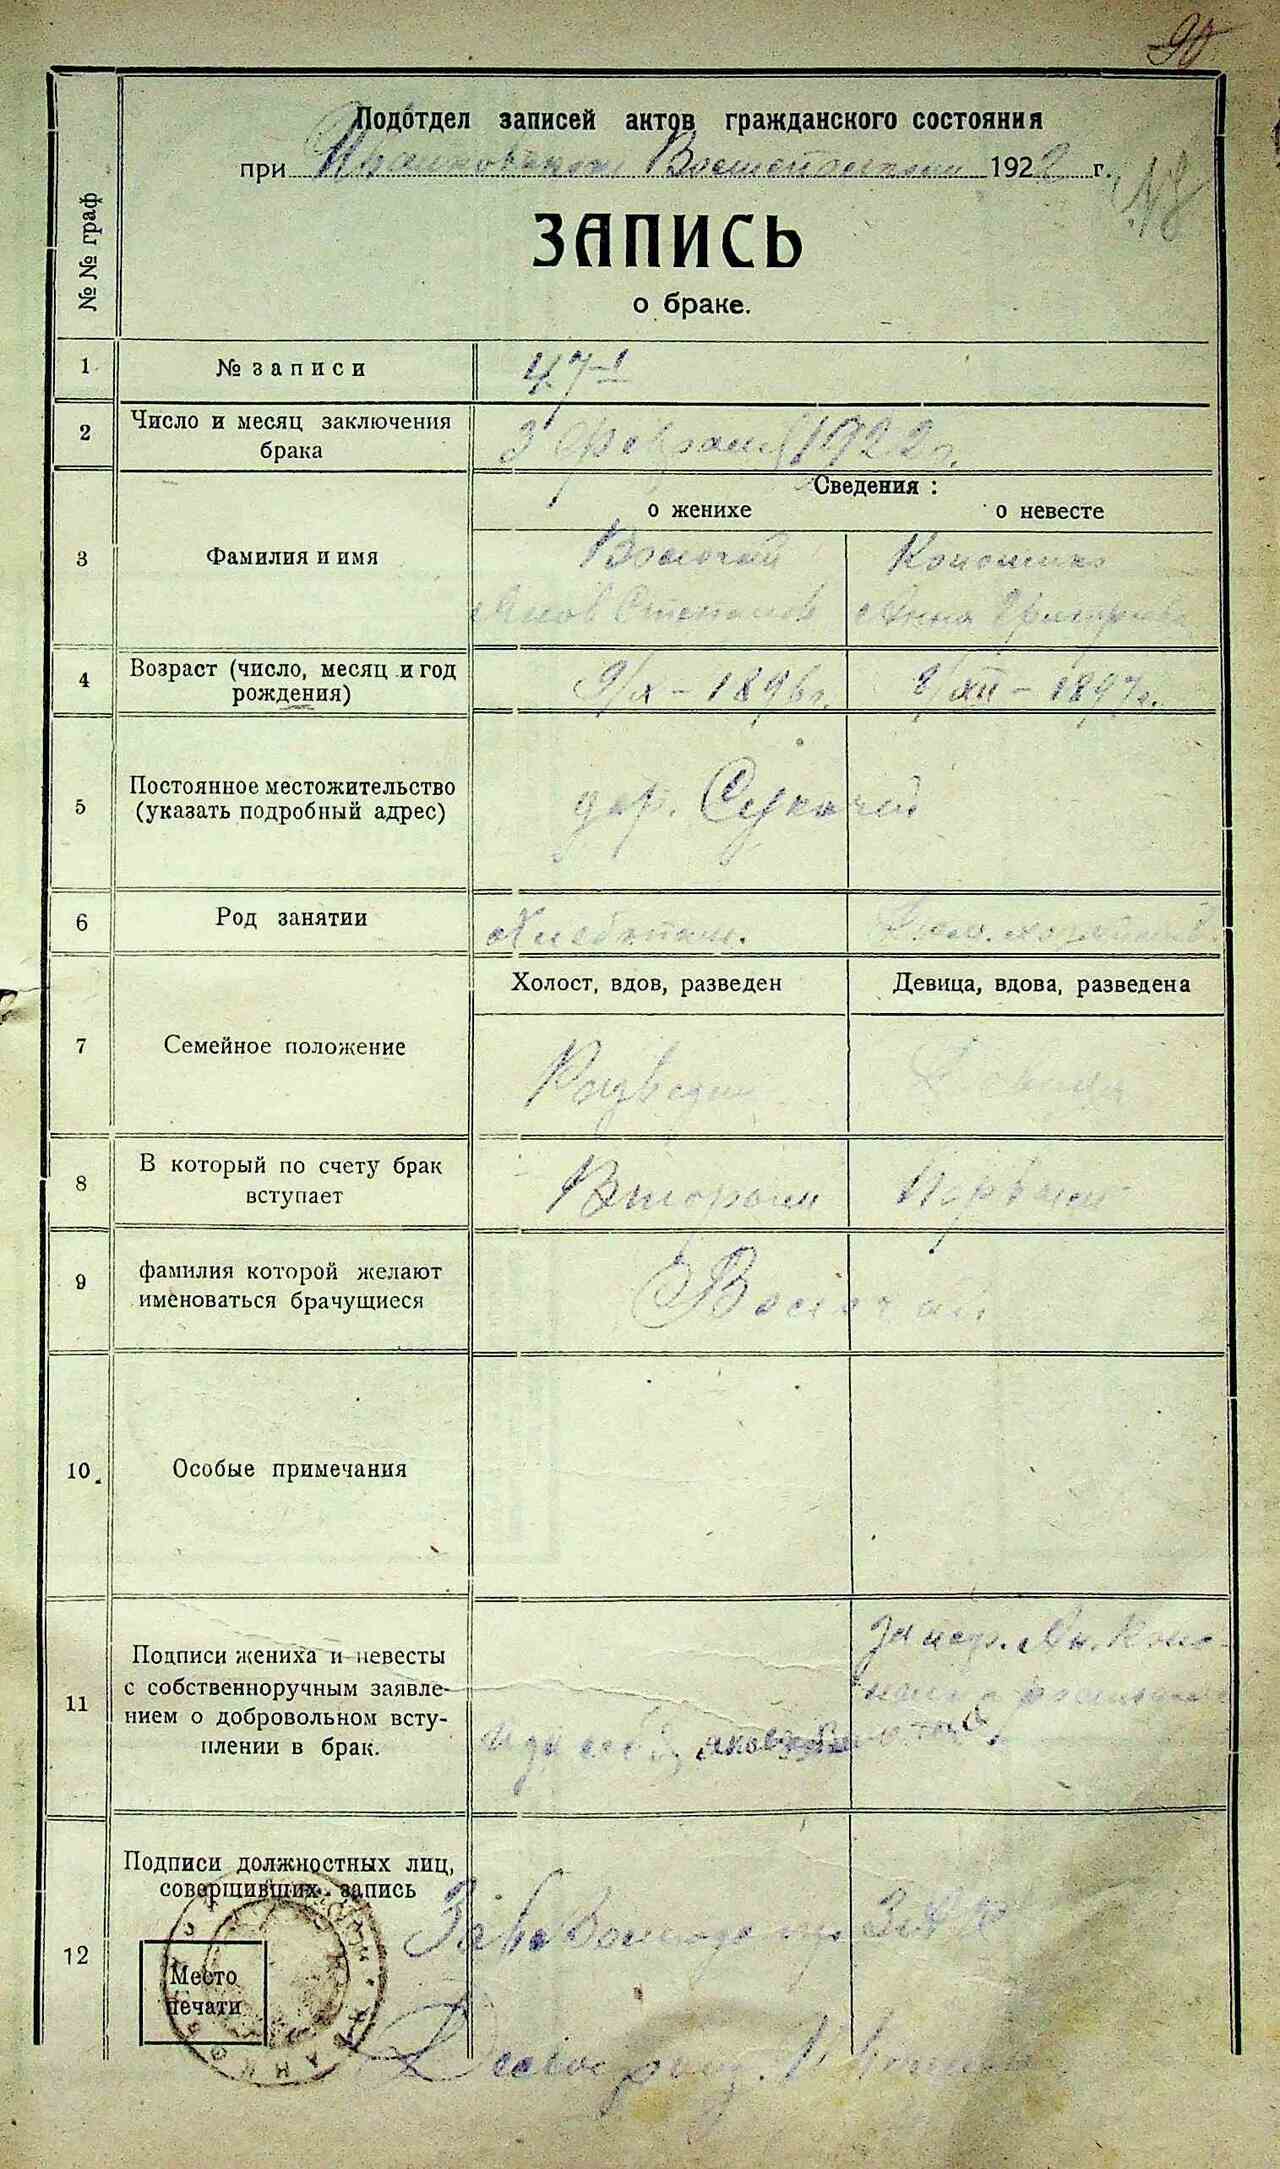 90
Подотдел записей актов гражданского состояния
при Иванковском 1922 г.
№ № граф
ЗАПИСЬ
о браке.
1 № записи 47
2 Число и месяц заключения
брака
3 февраля 1922 г.
Сведения :
о женихе о невесте
3 Фамилия и имя
Волочай Кононенко
Яков Степанов Анна Григорьева
4 Возраст (число, месяц и год
рождения)
9/X – 1896 г. 9/XII – 1897 г.
5 Постоянное местожительство
(указать подробный адрес)
дер. Сукачи
6 Род занятии Хлебопаш.
Холост, вдов, разведен Девица, вдова, разведена
7 Семейное положение
Разведен Девица
8 В который по счету брак
вступает
Вторым Первым
9 фамилия которой желают
именоваться брачущиеся
Волочай
10 Особые примечания
11 Подписи жениха и невесты
с собственноручным заявле-
нием о добровольном всту-
плении в брак.
За негр. Ан. Коно-
12 Подписи должностных лиц,
соверщивших запись
Место
печати